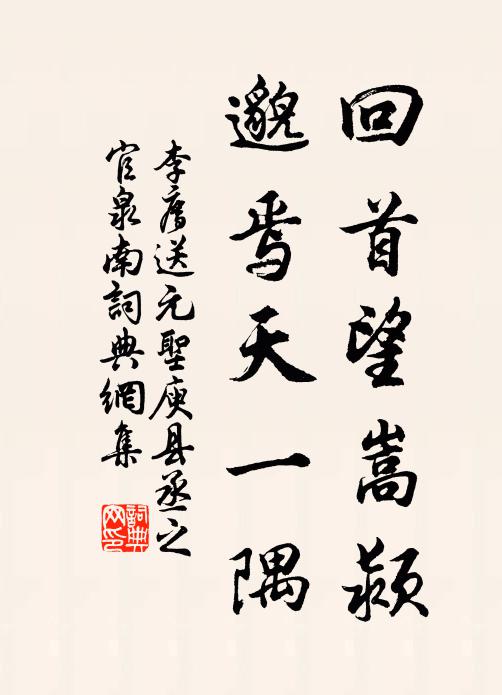 回首望嵩颍
邈焉天一隅
李廌送元聖庾县丞之
官泉南詞典網集
詞典
网印